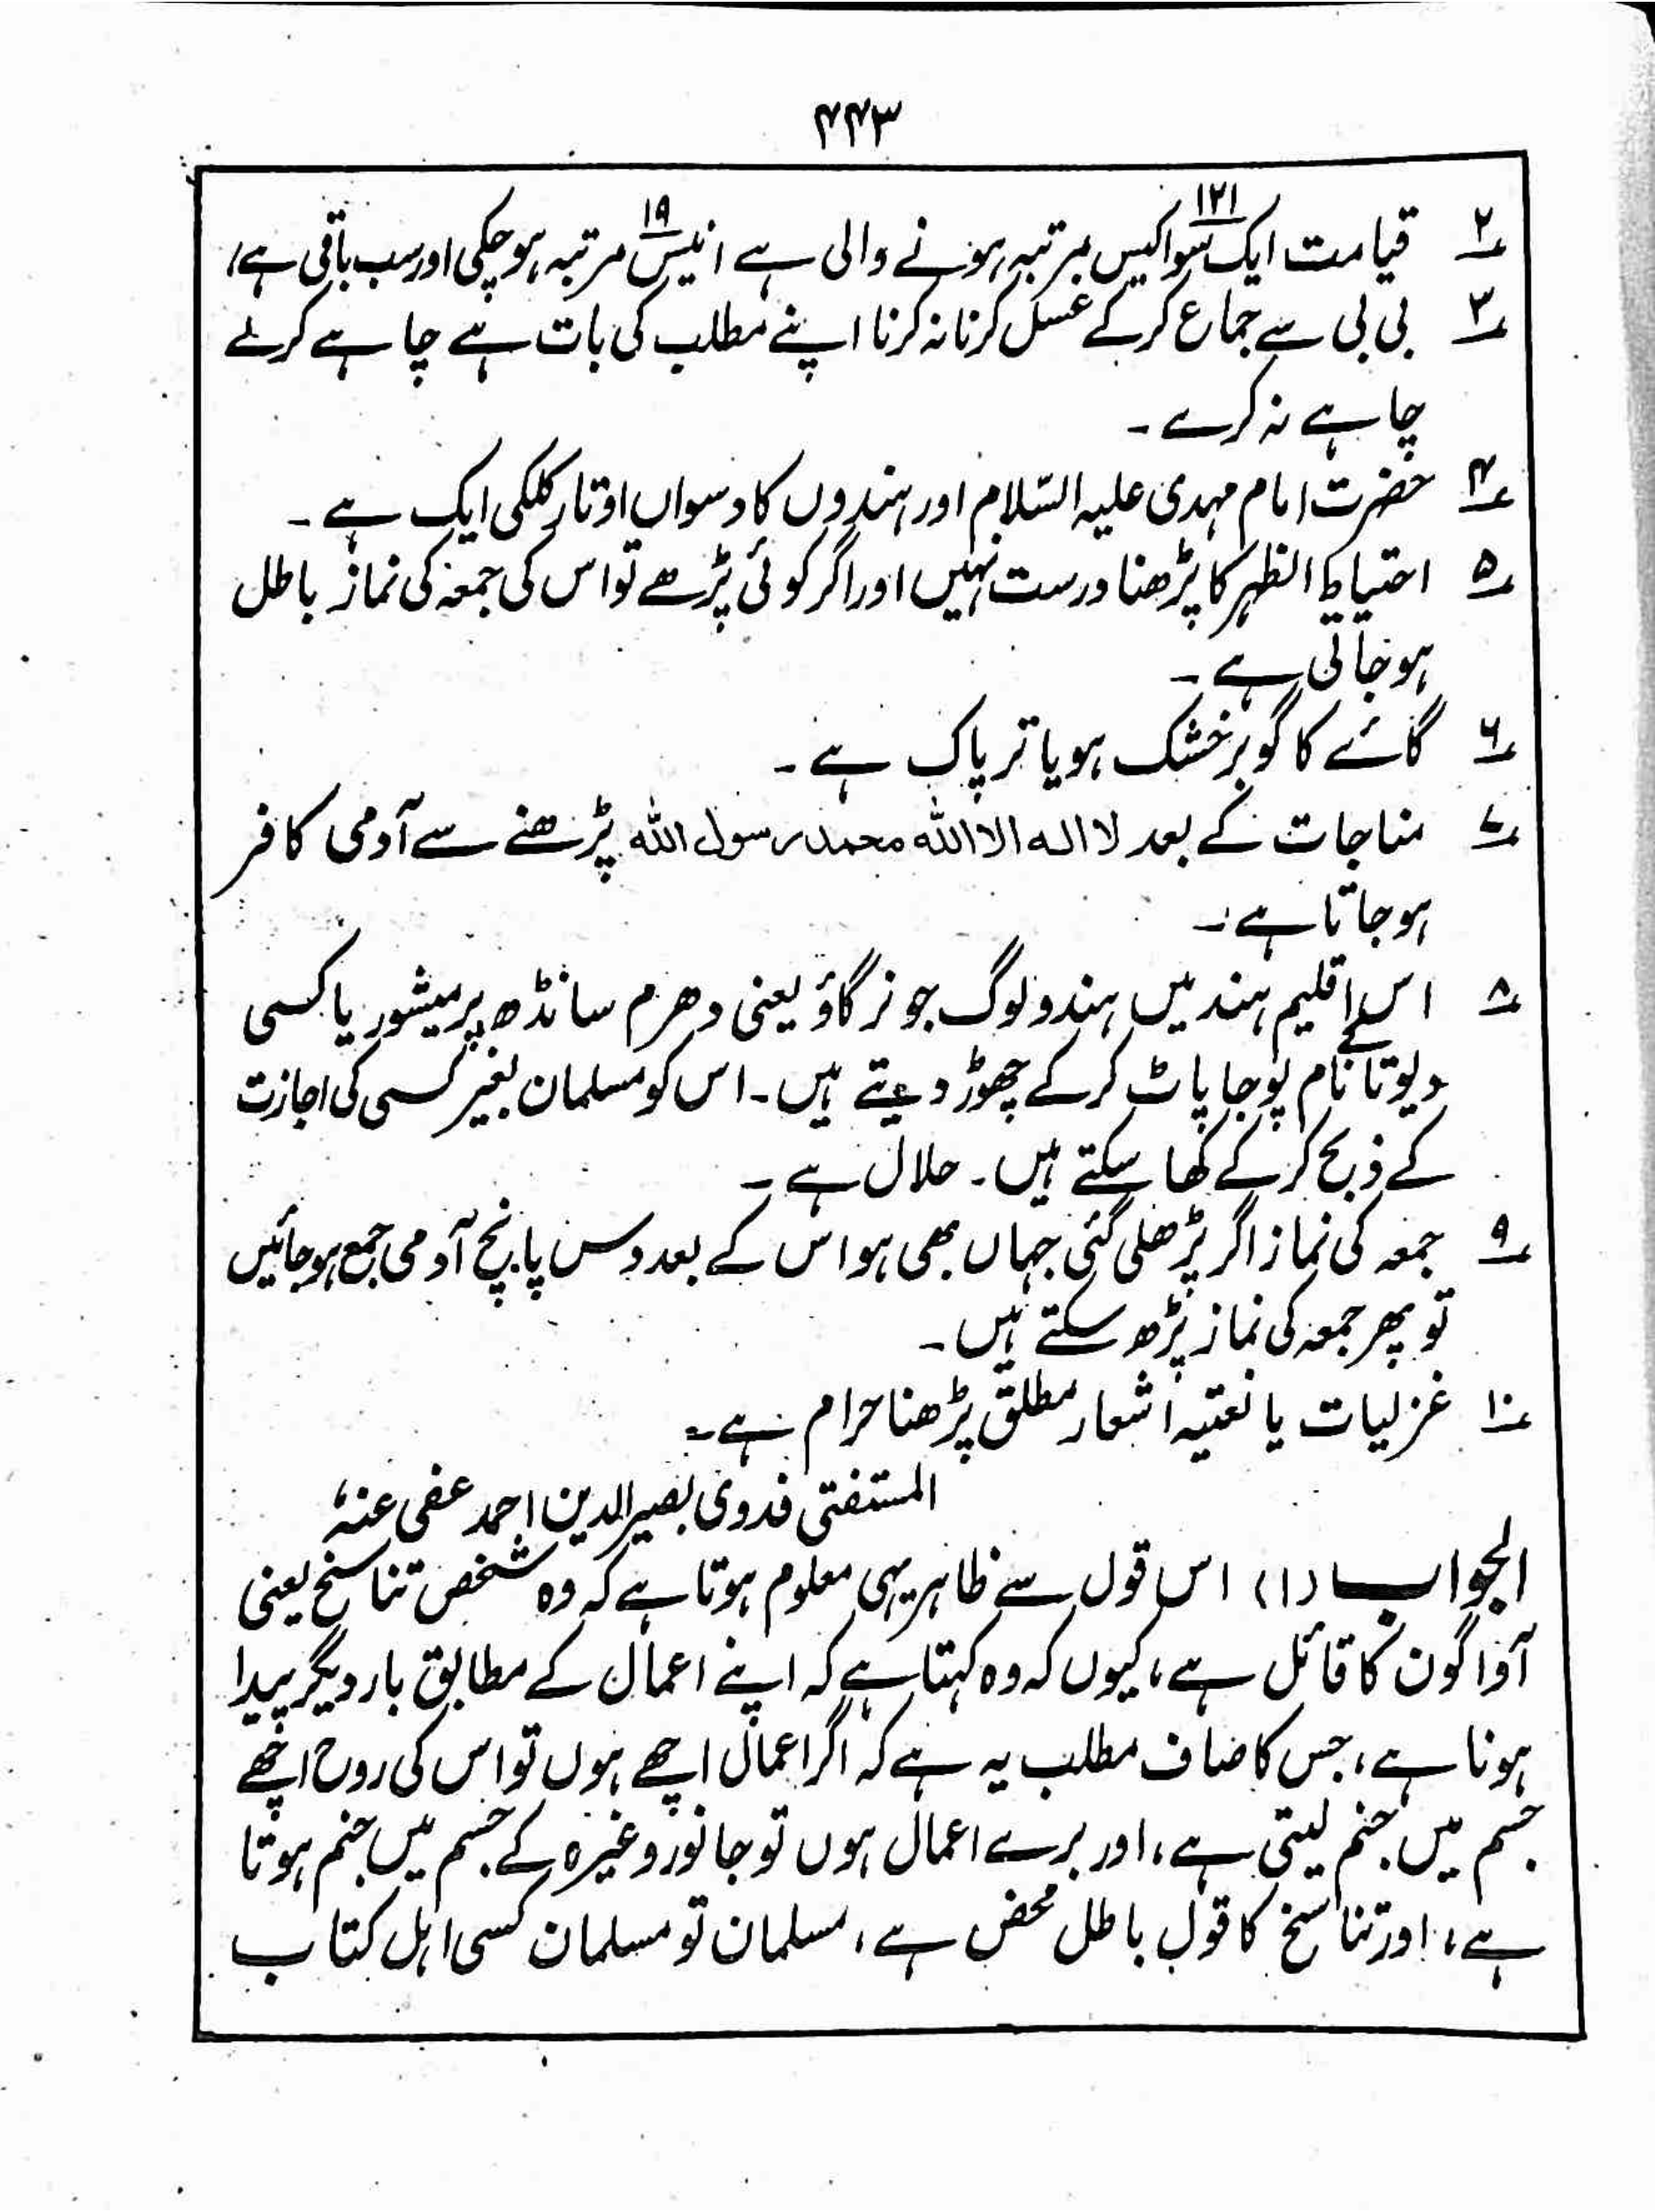 ۴۴۳
۱۲۱ ۱۹
۲؎ قیامت ایک سو اکیس مرتبہ ہونے والی ہے انیس مرتبہ ہوچکی اور سب باقی ہے،
۳؎ بی بی سے جماع کرکے غسل کرنا نہ کرنا اپنے مطلب کی بات ہے چاہے کرلے
چاہے نہ کرے۔
۴؎ حضرت امام مہدی علیہ السّلام اور ہندوں کا دسواں اوتار کلکی ایک ہے۔
۵؎ احتیاط الظہر کا پڑھنا درست نہیں اور اگر کوئی پڑھے تو اس کی جمعہ کی نماز باطل
ہوجاتی ہے۔
۶؎ گائے کا گوبر خشک ہو یا تر پاک ہے۔
۷؎ مناجات کے بعد لا الہ الا اللہ محمد رسول اللہ پڑھنے سے آدمی کافر
ہوجاتا ہے۔
۸؎ اس اقلیم ہند میں ہندو لوگ جو نر گاؤ یعنی دھرم سانڈھ پرمیشور یا کسی
دیوتا کے نام پوجا پاٹ کرکے چھوڑ دیتے ہیں۔ اس کو مسلمان بغیر کسی کی اجازت
کے ذبح کرکے کھا سکتے ہیں۔ حلال ہے۔
۹؎ جمعہ کی نماز اگر پڑھلی گئی جہاں بھی ہو اس کے بعد دس پانچ آدمی جمع ہوجائیں
تو پھر جمعہ کی نماز پڑھ سکتے ہیں۔
۱۰؎ غزلیات یا نعتیہ اشعار مطلق پڑھنا حرام ہے۔
المستفتی فدوی بصیرالدین احمد عفی عنہٗ
الجواب (۱) اس قول سے ظاہر یہی معلوم ہوتا ہے کہ وہ شخص تناسخ یعنی
آواگون کا قائل ہے، کیوں کہ وہ کہتا ہے کہ اپنے اعمال کے مطابق بار دیگر پیدا
ہونا ہے، جس کا صاف مطلب یہ ہے کہ اگر اعمال اچھے ہوں تو اس کی روح اچھے
جسم میں جنم لیتی ہے، اور برے اعمال ہوں تو جانور وغیرہ کے جسم میں جنم ہوتا
ہے، اور تناسخ کا قول باطل محض ہے، مسلمان تو مسلمان کسی اہل کتاب